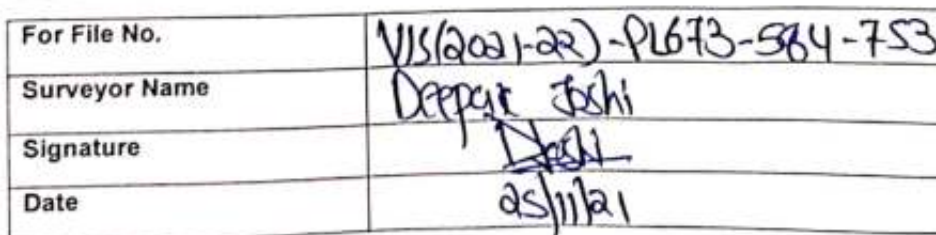 For File No. VIS(2021-22)-PL673-584-753
Surveyor Name Deepak Joshi
Signature Joshi
Date 25/11/21